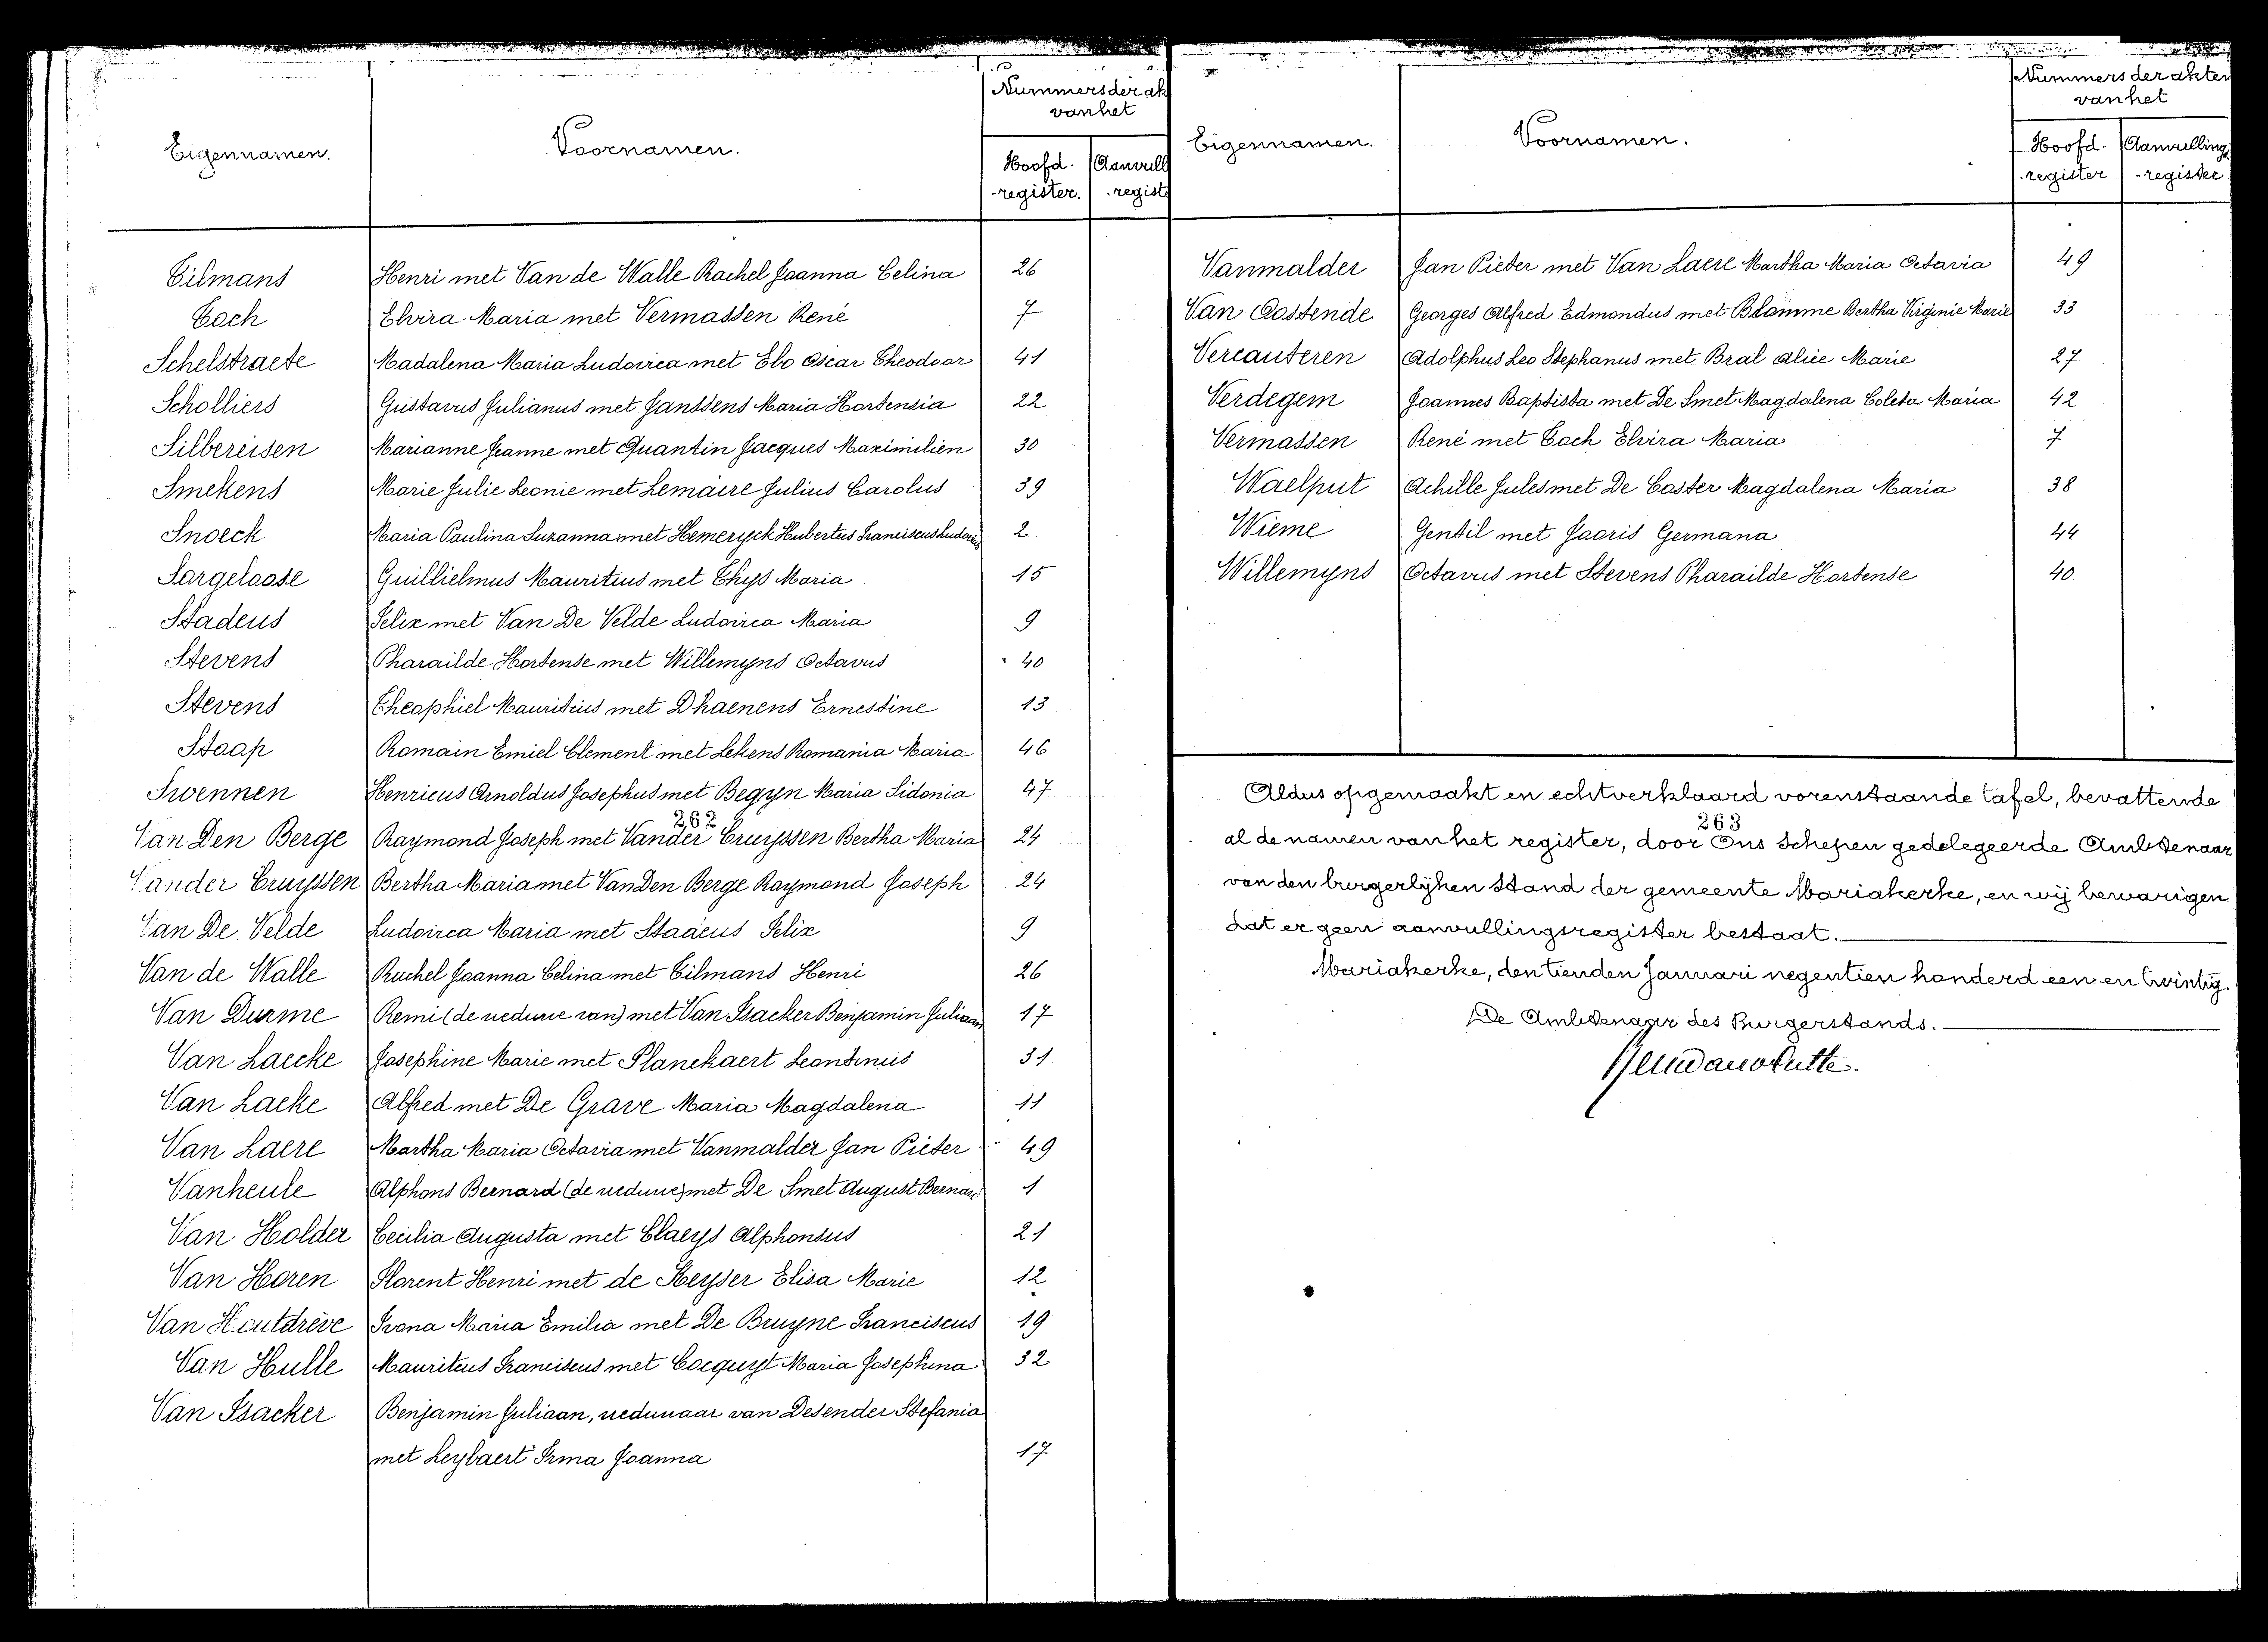 Eigennamen. Voornamen. Nummers der ak
van het
Hoofd- Aanvull
register. regist
Tilmans Henri met Van de Walle Rachel Joanna Celina 26
Toch Elvira Maria met Vermassen René 7
Schelstraete Madalena Maria Ludovica met Ebo Oscar Theodoor 41
Scholliers Gustavus Julianus met Janssens Maria Hortensia 22
Silbereisen Marianne Jeanne met Quantin Jacques Maximilien 30
Smekens Marie Julie Leonie met Lemaire Julius Carolus 39
Snoeck Maria Paulina Suzanna met Hemeryck Hubertus Franciscus 2
Sargeloose Guillielmus Mauritius met Thys Maria 15
Stadeus Felix met Van De Velde Ludovica Maria 9
Stevens Pharailde Hortense met Willemyns Octavus 40
Stevens Theophiel Mauritius met Dhaenens Ernestine 13
Staap Romain Emiel Clement met Lekens Romania Maria 46
Swennen Henricus Arnoldus Josephus met Begyn Maria Sidonia 47
262
Van Den Berge Raymond Joseph met Vander Cruyssen Bertha Maria 24
Vander Cruyssen Bertha Maria met Van Den Berge Raymond Joseph 24
Van De Velde Ludovica Maria met Stadeus Felix 9
Van de Walle Rachel Joanna Celina met Tilmans Henri 26
Van Durme Remi (de weduwe van) met Van Isacker Benjamin Juliaan 17
Van Laecke Josephine Marie met Planckaert Leontinus 31
Van Lacke Alfred met De Grave Maria Magdalena 11
Van Laere Martha Maria Octavia met Vanmalder Jan Pieter 49
Vanheule Alphons Bernard (de weduwe) met De Smet August Bernard 1
Van Holder Cecilia Augusta met Claeys Alphonsus 21
Van Horen Florent Henri met de Keyser Elisa Marie 12
Van Houtdrève Irona Maria Emilia met De Bruyne Franciscus 19
Van Hulle Mauriteus Franciscus met Cocquyt Maria Josephina 32
Van Isacker Benjamin Juliaan, weduwaar van Desender Stefania
met Leybaert Irma Joanna 17
Eigennamen. Voornamen. Nummers der akten
van het
Hoofd- Aanvulling
register - register
Vanmalder Jan Pieter met Van Laere Martha Maria Octavia 49
Van Oostende Georges Alfred Edmondus met Blomme Bertha Virginie Marie 33
Vercauteren Adolphus Leo Stephanus met Bral Alice Marie 27
Verdegem Joannes Baptista met De Smet Magdalena Coleta Maria 42
Vermassen René met Toch Elvira Maria 7
Waelput Achille Jules met De Coster Magdalena Maria 38
Wieme Gentil met Jooris Germana 44
Willemyns Octavus met Stevens Pharailde Hortense 40
Aldus opgemaakt en echtverklaard vorenstaande tafel, bevattende
263
al de namen van het register, door Ons Schepen gedelegeerde Ambtenaar
van den burgerlyken Stand der gemeente Mariakerke, en wij bewarigen
dat er geen aanvullingsregister bestaat.
Mariakerke, den tienden Januari negentien honderd een en twintig.
De Ambtenaar des Burgerstands.